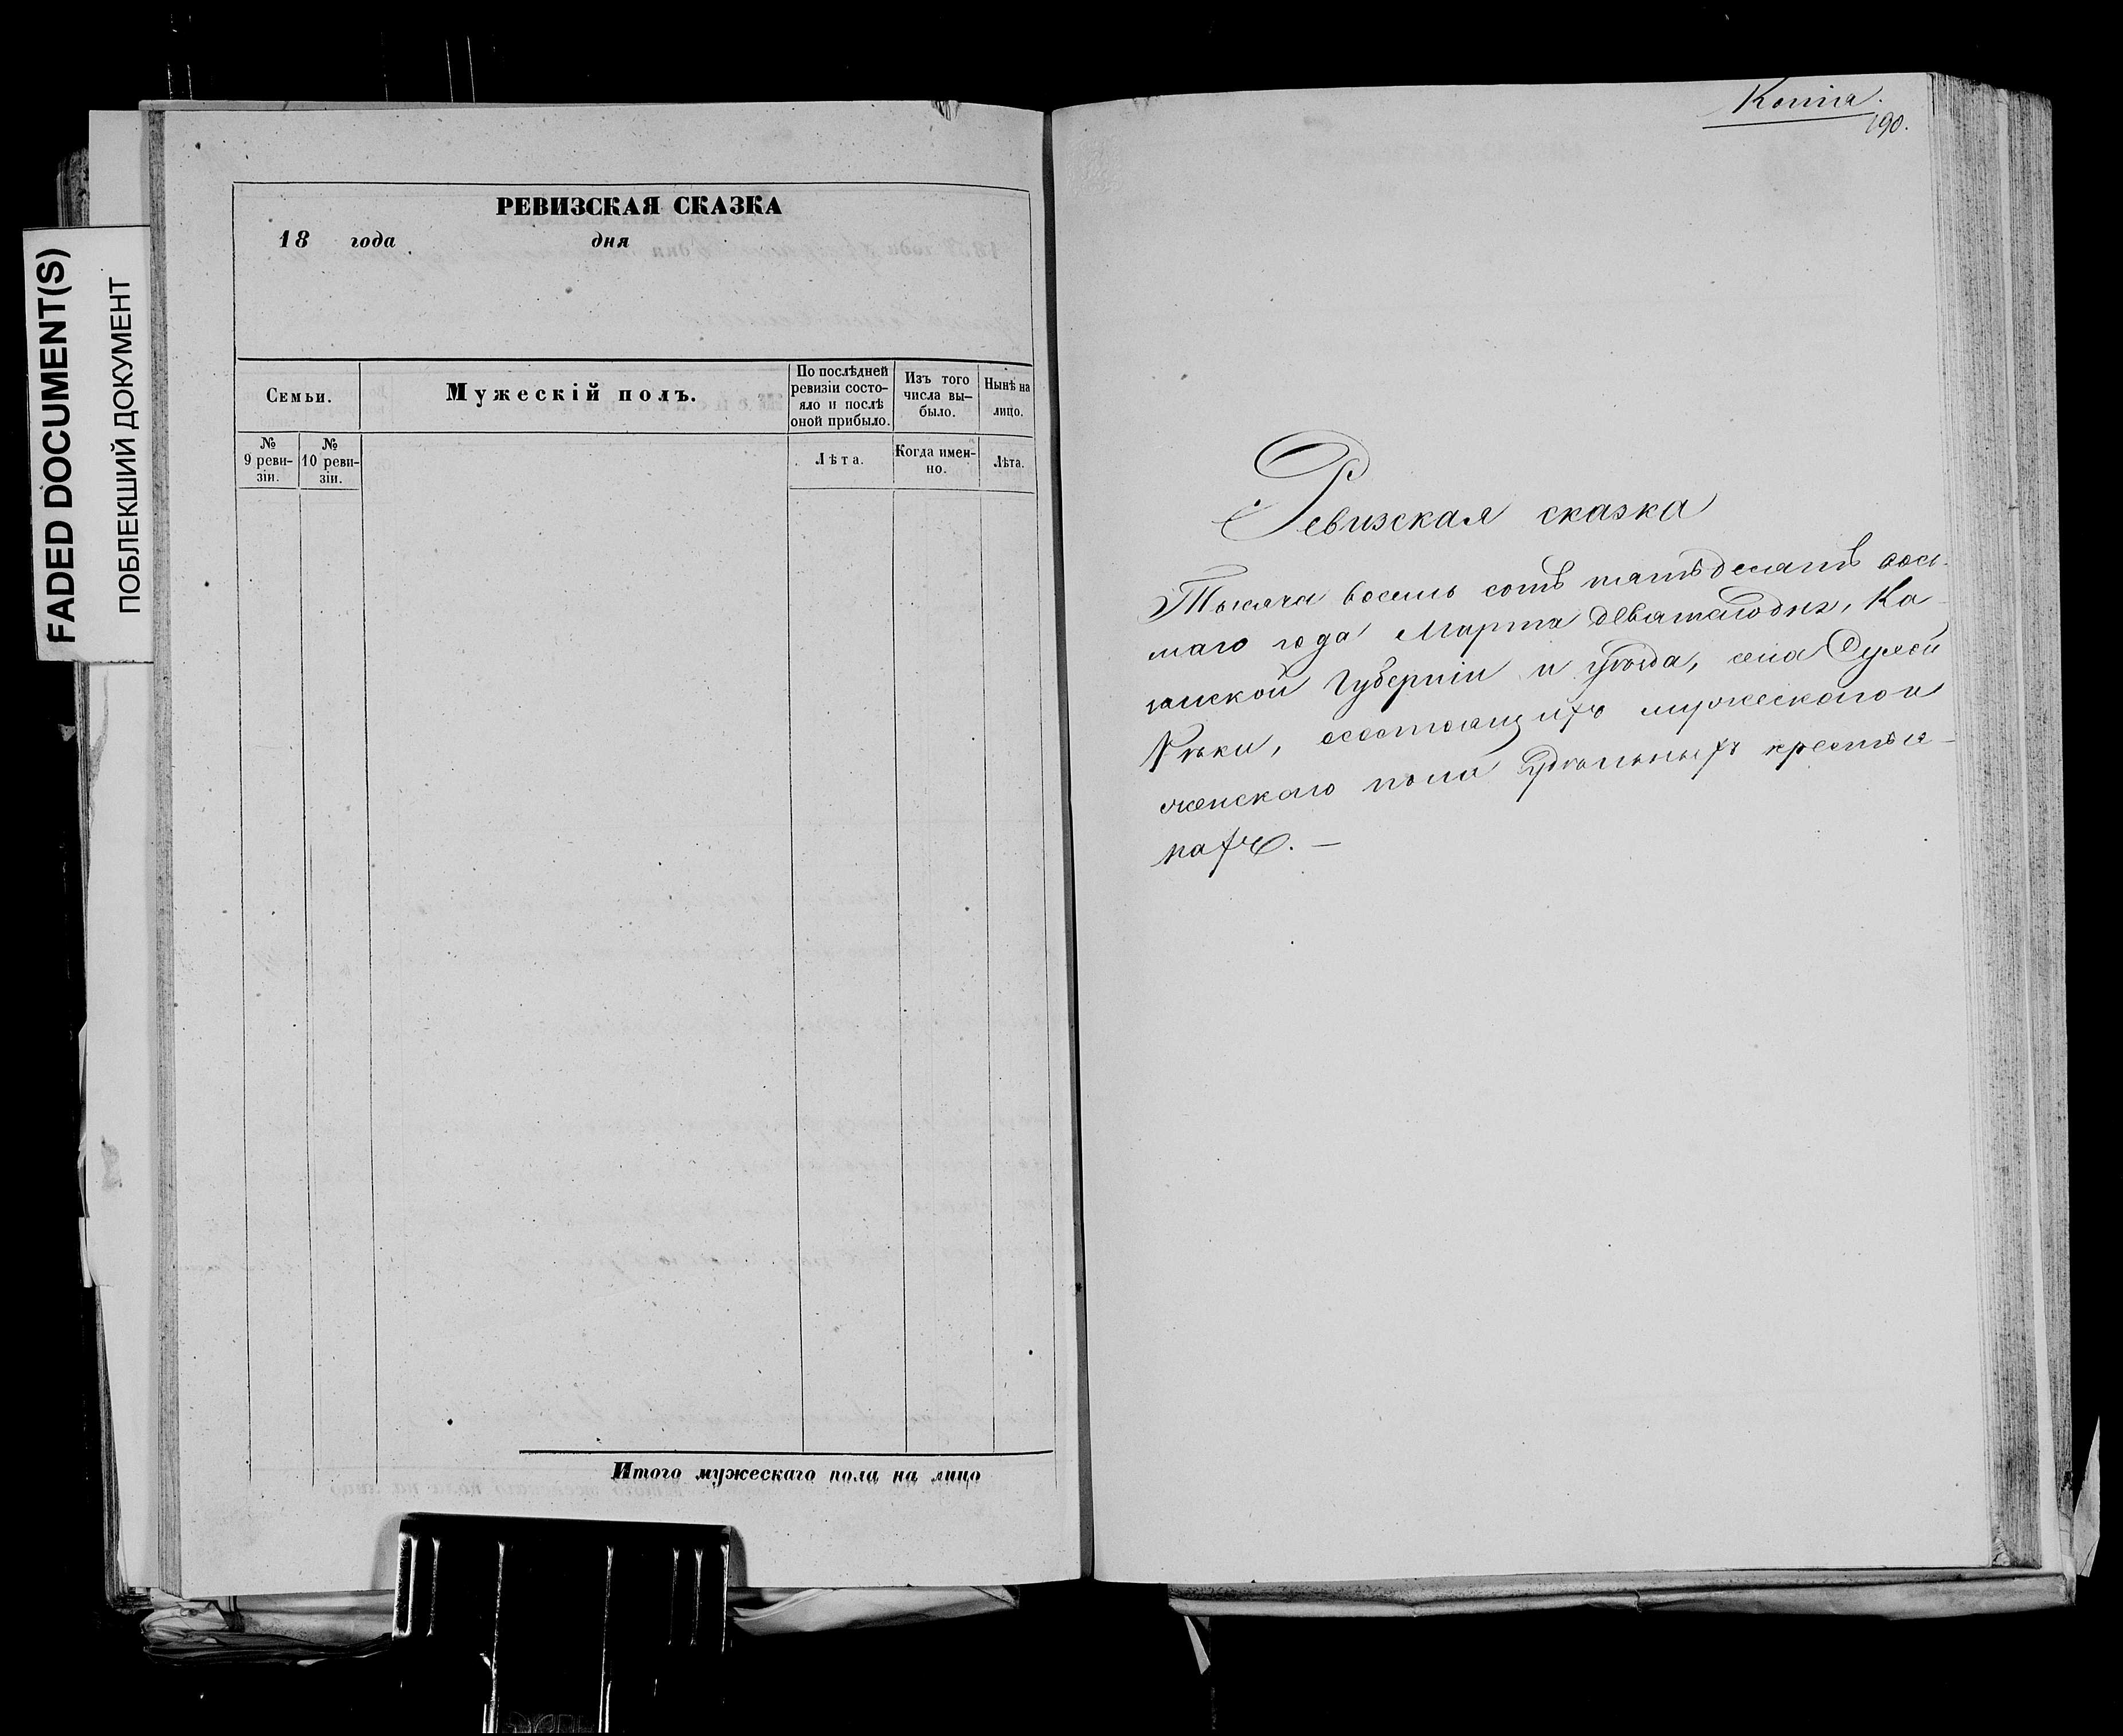 FADED DOCUMENT(S)
ПОБЛЕКШИЙ ДОКУМЕНТ
РЕВИЗСКАЯ СКАЗКА
18 года дня
Семьи.
Мужескій полъ.
По послѣдней
ревизіи состо-
яло и послѣ
оной прибыло.
Изъ того
числа вы-
было.
Нынѣ на
лицо.
№
9 реви-
зіи.
№
10 реви-
зіи.
Лѣта.
Когда имен-
но.
Лѣта.
Итого мужескаго пола на лицо
Копія.
190.
Ревизская сказка
Тысяча восемь сотъ пятьдесятъ вось-
маго года Марта девятаго дня, Ка-
занской Губерніи и уѣзда, села Сухой
Рѣки, состоящихъ мужескаго и
женскаго пола Удѣльныхъ крестья-
нахъ. —